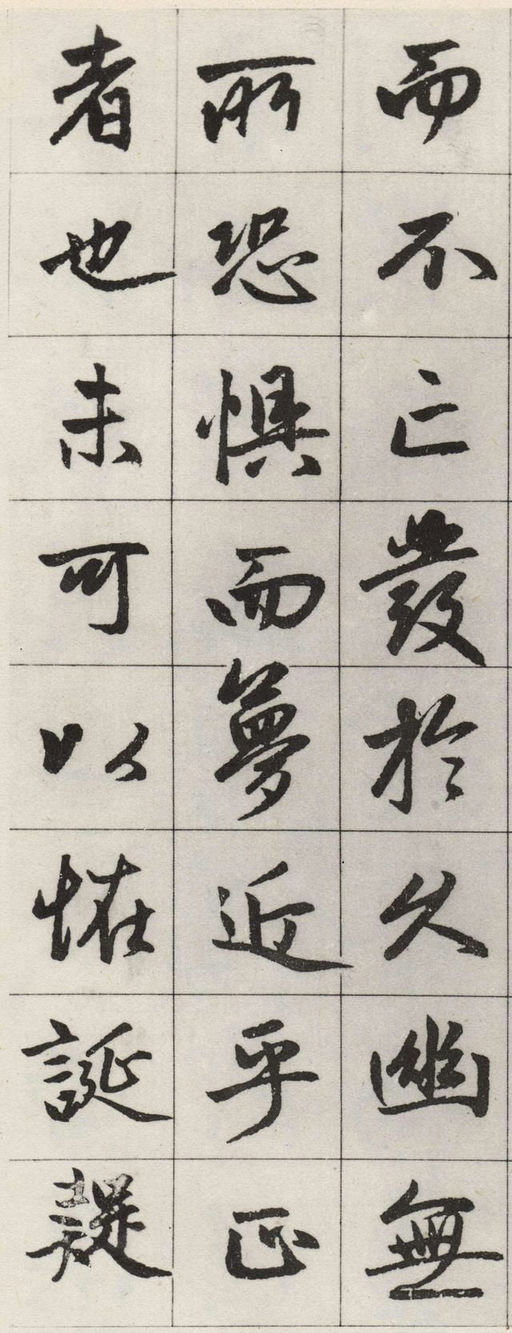 而不亡發於久幽無
所恐懼而夢近乎正
者也未可以恠誕